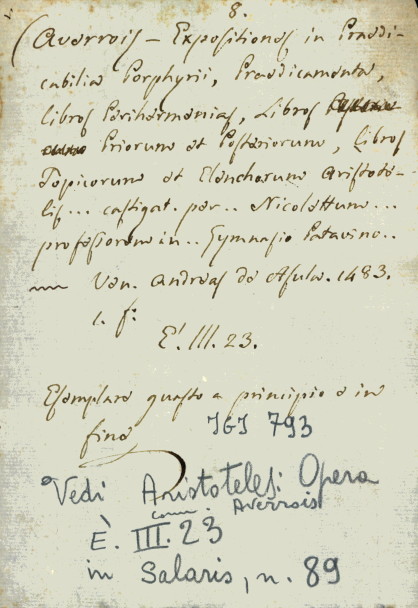 8.
(Averrois – Expositiones, in Praedi-
cabilia Porphyrii, Praedicamenta,
libros Perihermenias, Libros
Priorum et Posteriorum, libros
Topicorum et Elenchorum Aristote-
lis... castigat. per.. Nicolettum...
professorem in.. Gymnasio Patavino..
Ven. Andreas de Asula. 1483.
1. f:
E'. III. 23.
Esemplare guasto a principio e in
fine
IGI 793
Vedi Aristoteles: Opera
comm. Averrois
È. III. 23
in Salaris, n. 89